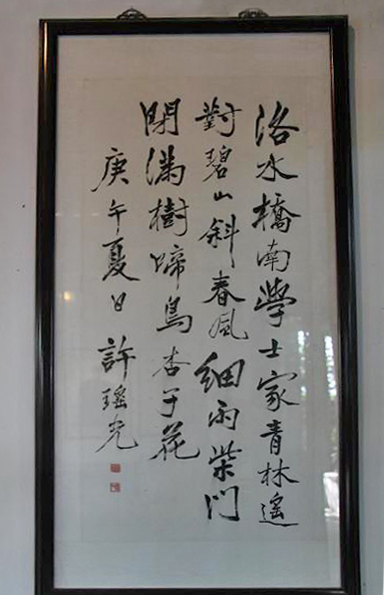 洛水橋南學士家青林遙
對碧山斜春風細雨柴門
閉滿樹啼鳥杏子花
庚午夏日 許瑤光